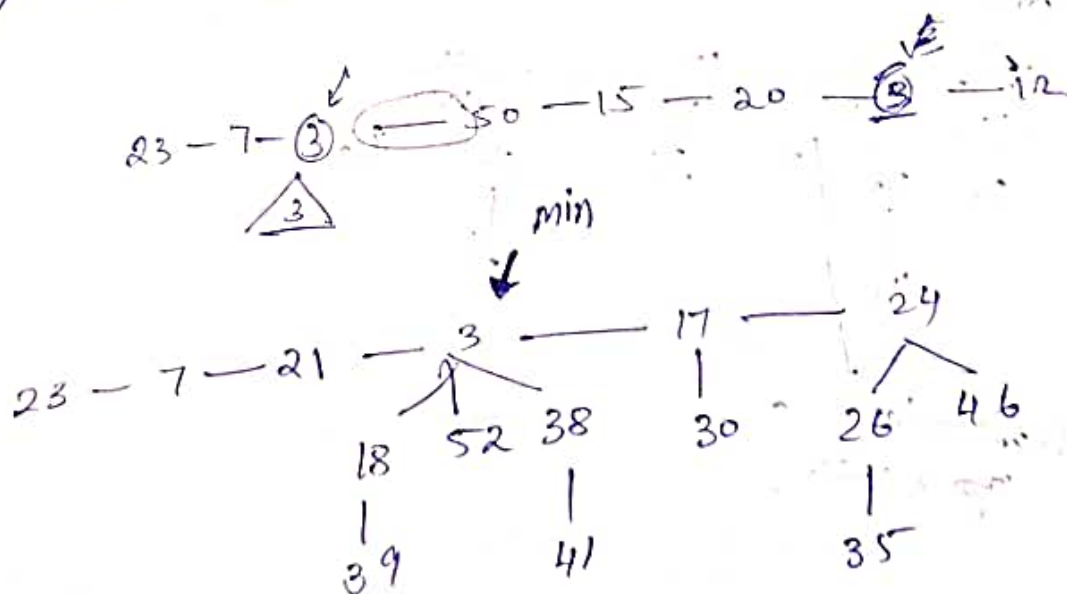 23 - 7 - 3 — 50 — 15 — 20 — 3 — 12
3
min
23 - 7 — 21 — 3 — 17 — 24
18 52 38 30 26 46
39 41 35